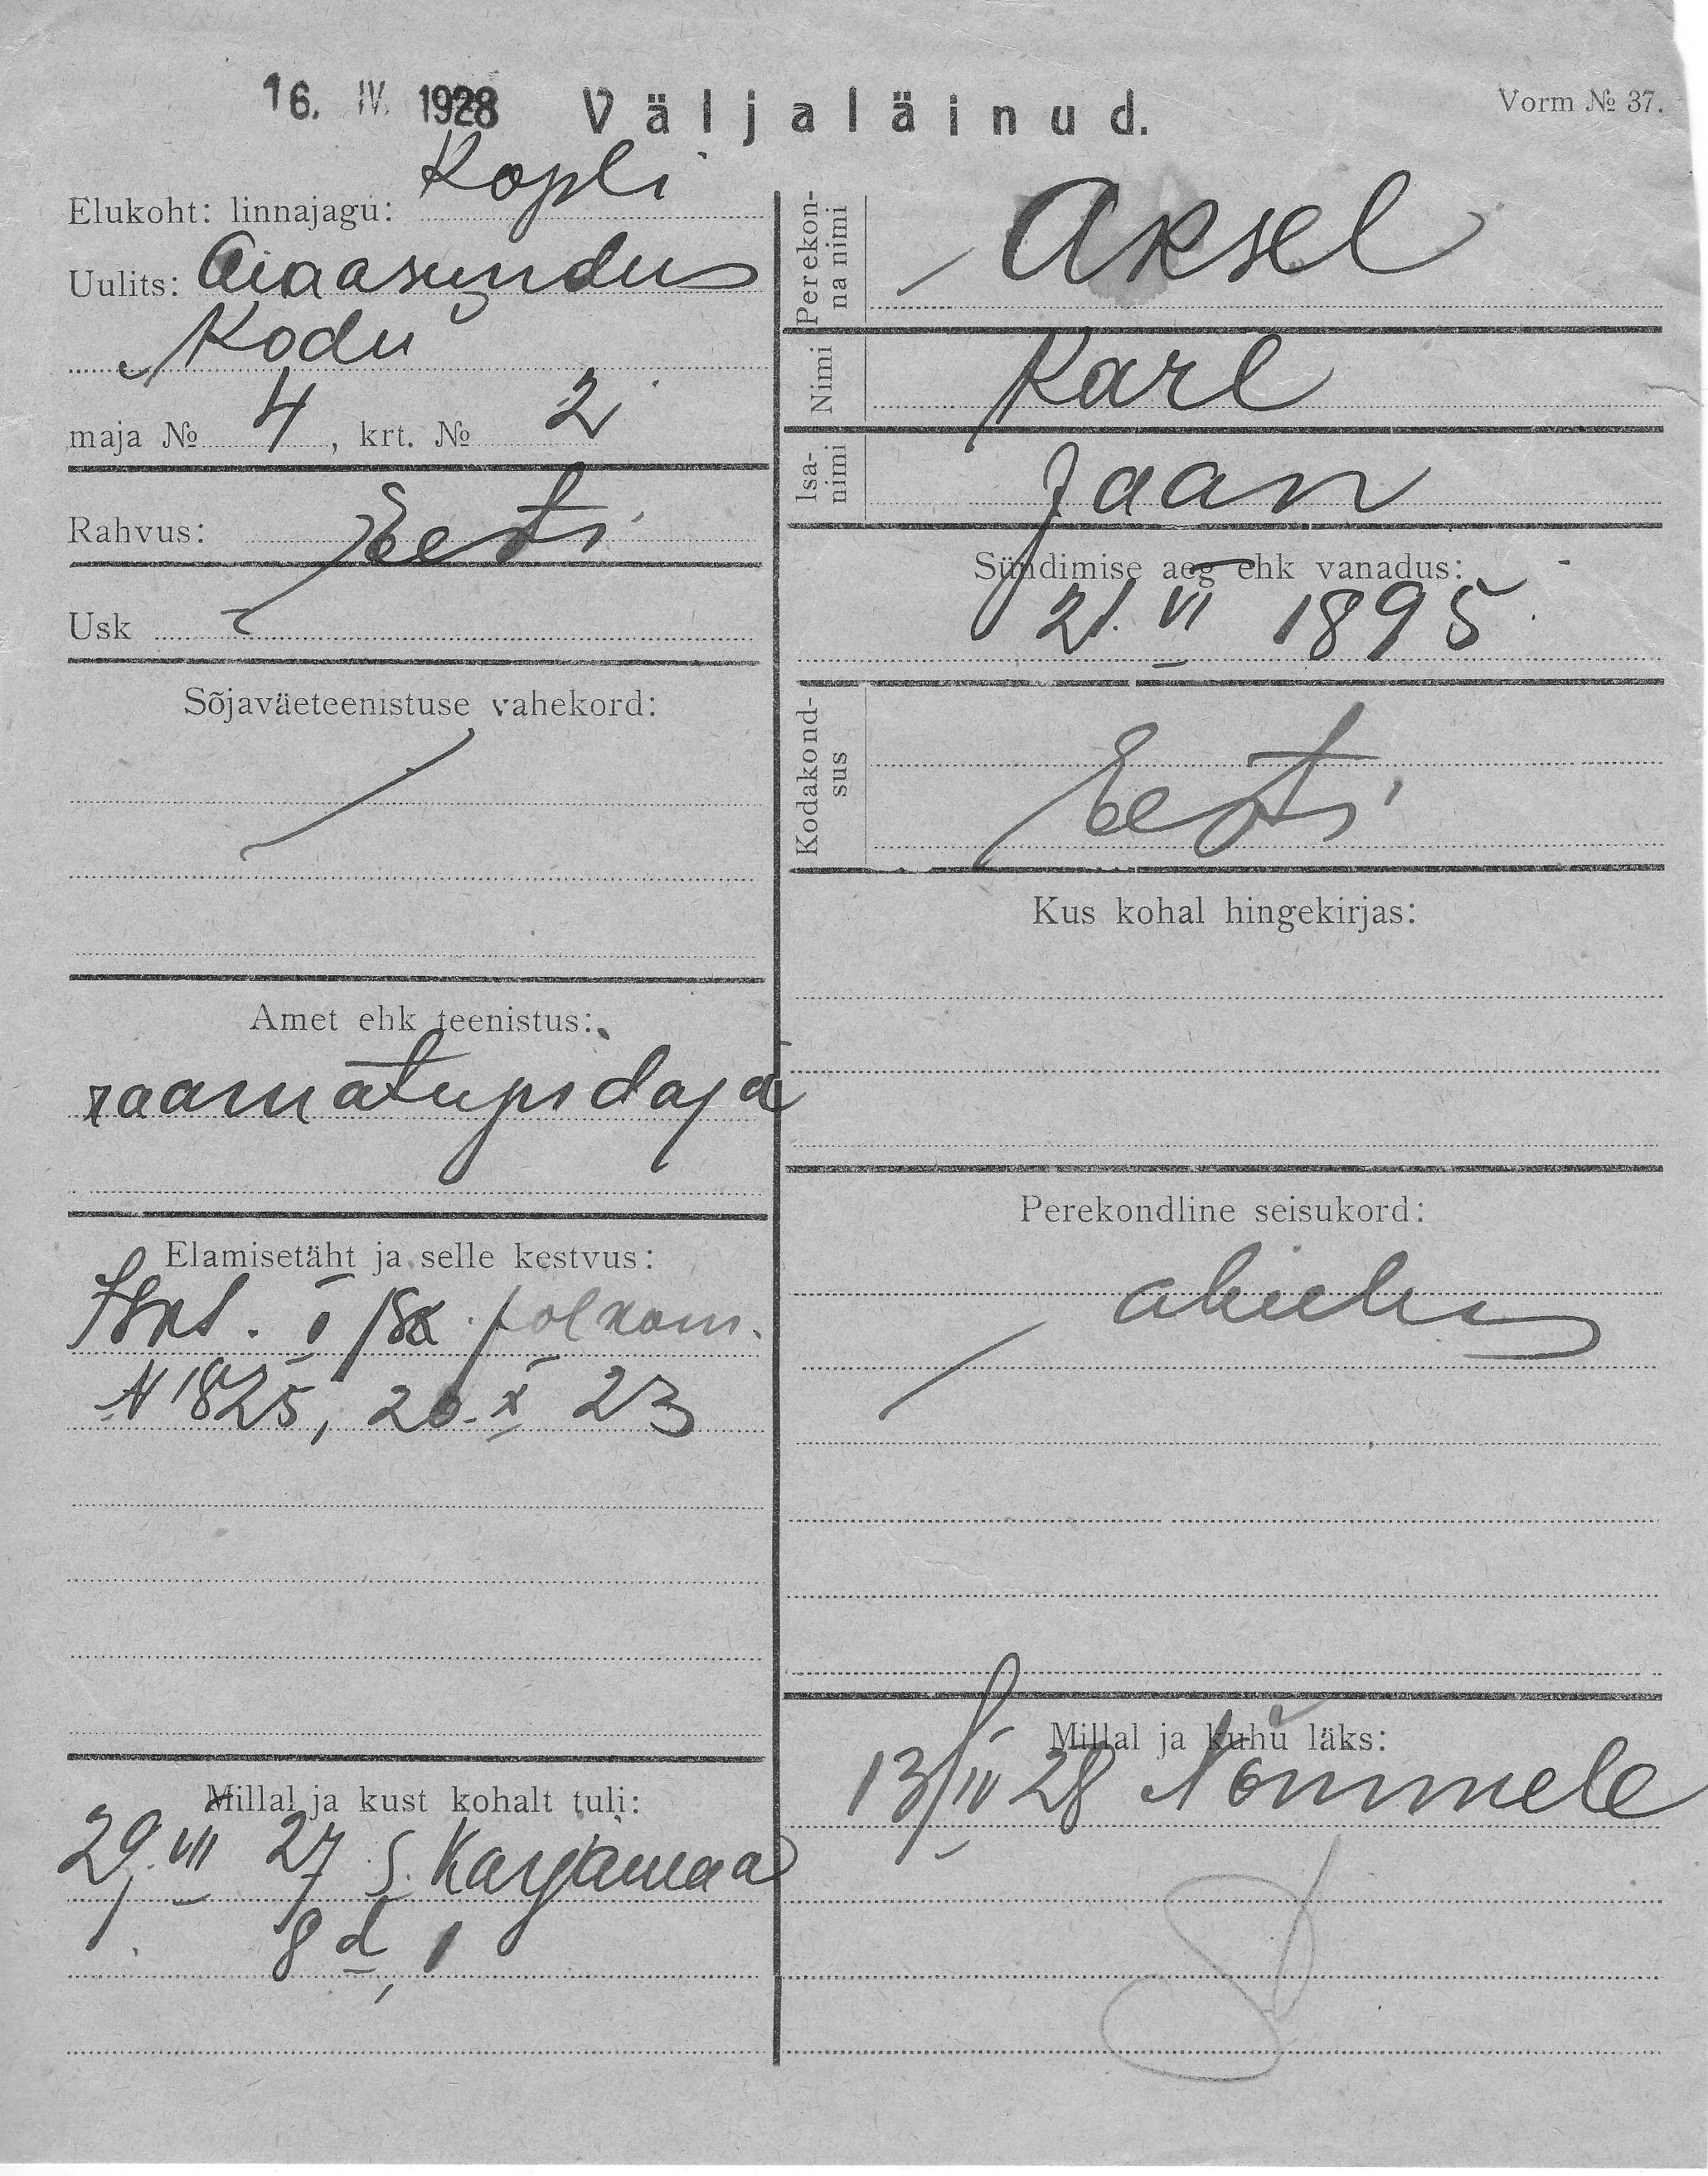 16. IV. 1928 Väljaläinud. Vorm № 37.
Elukoht: linnajagu: Kopli
Uulits: Aiaasundus
Kodu
maja № 4, krt. № 2
Rahvus: Eesti
Usk
Sõjaväeteenistuse vahekord:
Amet ehk teenistus:
raamatupidaja
Elamisetäht ja selle kestvus:
polkom.
N 1825, 26. X 23
Millal ja kust kohalt tuli:
29. VII 27 S. Karjamaa
8 d, 1
Perekonnanimi Aksel
Nimi Karl
Isanimi Jaan
Sündimise aeg ehk vanadus:
21. VI 1895
Kodakondsus Eesti
Kus kohal hingekirjas:
Perekondline seisukord:
abielus
Millal ja kuhu läks:
13/IV 28 Nõmmele